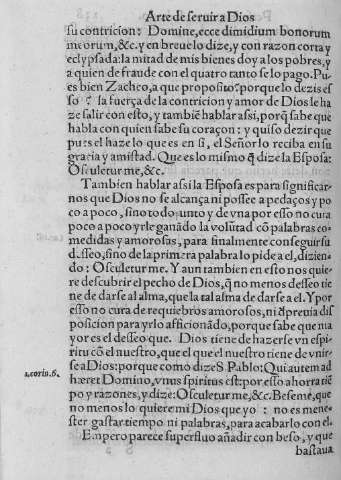 Arte de seruir a Dios
su contricion: Domine, ecce dimidium bonorum
meorum, &c. y en breue lo dize, y con razon corta y
eclypsada: la mitad de mis bienes doy a los pobres, y
a quien defraude con el quatro tanto se lo pago. Pu-
es bien Zacheo, a que proposito? porque lo dezis es
so? la fuerça de la contricion y amor de Dios le ha
ze salir con esto, y tambiē hablar assi, porq̃ sabe que
habla con quien sabe su coraçon: y quiso dezir que
pues el haze lo que es en si, el Señor lo reciba en su
gracia y amistad. Que es lo mismo q̃ dize la Esposa:
Osculetur me, &c.
Tambien hablar assi la Esposa es para significar-
nos que Dios no se alcança ni possee a pedaços y po
co a poco, sino todo junto y de vna por esso no cura
poco a poco yrle ganādo la volūtad cō palabras co-
medidas y amorosas, para finalmente conseguir su
desseo, sino de la primera palabra lo pide a el, dizien-
do: Osculetur me. Y aun tambien en esto nos quie-
re descubrir el pecho de Dios, q̃ no menos desseo tie
ne de darse al alma, que la tal alma de darse a el. Y por
esso no cura de requiebros amorosos, ni d̃ preuia dis
posicion para yrlo afficionādo, porque sabe que ma
yor es el desseo que Dios tiene de hazerse vn espi-
ritu cō el nuestro, que el que el nuestro tiene de vnir-
se a Dios: porque como dize S. Pablo: Qui autem ad
1. corin. 6. hæret Domino, vnus spiritus est: por esso ahorra tiē
po y razones, y dize: Osculetur me, &c. Beseme, que
no menos lo quiere mi Dios que yo: no es mene-
ster gastar tiempo ni palabras, para acabarlo con el.
Empero parece superfluo añadir con beso, y que
bastaua